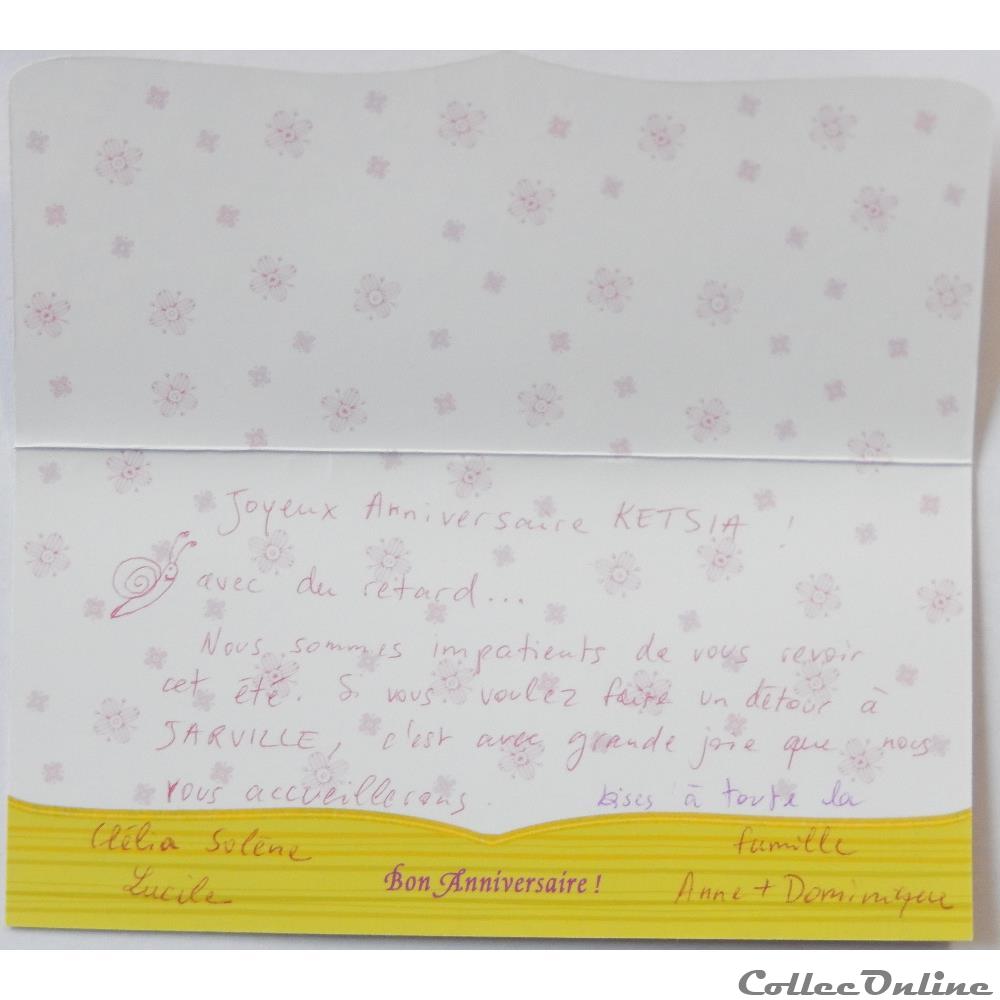 Joyeux Anniversaire KETSIA !
avec du retard...
Nous sommes impatients de vous revoir
cet été. Si vous voulez faire un détour à
JARVILLE, c'est avec grande joie que nous
vous accueillerons. bises à toute la
famille
Clélia Solène
Lucile
Anne + Dominique
Bon Anniversaire !
CollecOnline